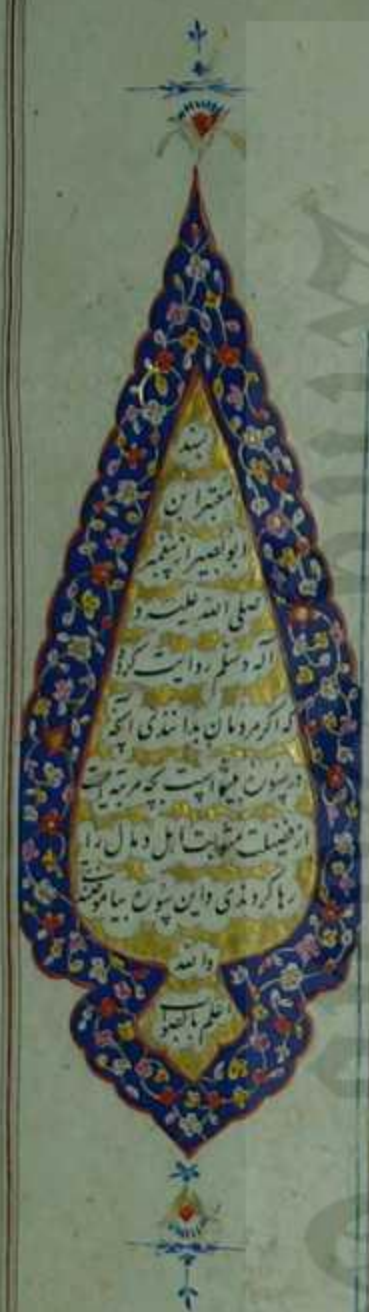 بسند
معتبر ابن
ابو بصیر از پیغمبر
صلی الله علیه و
آله و سلم روایت کرد
که اگر مردمان بدانندی آنچه
در سوره است بچه مرتبه است
از فضیلت مثوبات اهل و مال را
رها کردندی و این سوره بیاموختند
و الله
اعلم بالصواب